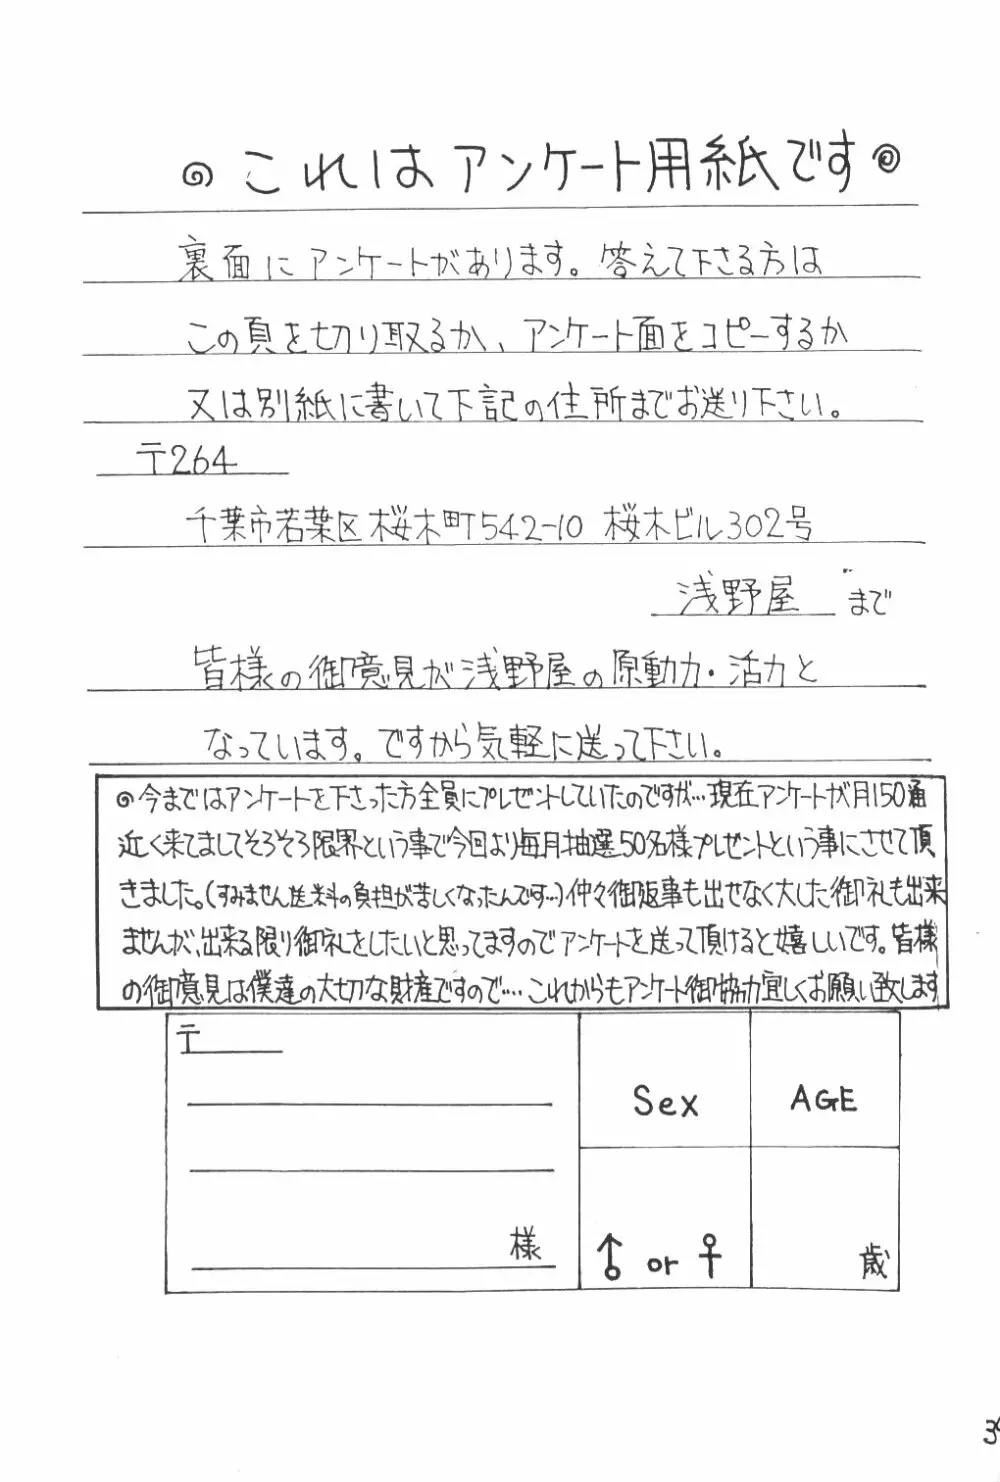 ◎これはアンケート用紙です◎
裏面にアンケートがあります。答えて下さる方は
この頁を切り取るか、アンケート面をコピーするか
又は別紙に書いて下記の住所までお送り下さい。
〒264
千葉市若葉区桜木町542-10 桜木ビル302号
浅野屋 まで
皆様の御意見が浅野屋の原動力・活力と
なっています。ですから気軽に送って下さい。
◎今まではアンケートを下さった方全員にプレゼントしていたのですが…現在アンケートが月150通
近く来てましてそろそろ限界という事で今回より毎月抽選50名様プレゼントという事にさせて頂
きました。(すみません送料の負担が苦しくなったんです…)仲々御返事も出せなく大した御礼も出来
ませんが、出来る限り御礼をしたいと思ってますのでアンケートを送って頂けると嬉しいです。皆様
の御意見は僕達の大切な財産ですので…これからもアンケート御協力宜しくお願い致します
〒
Sex AGE
様 ♂ or ♀ 歳